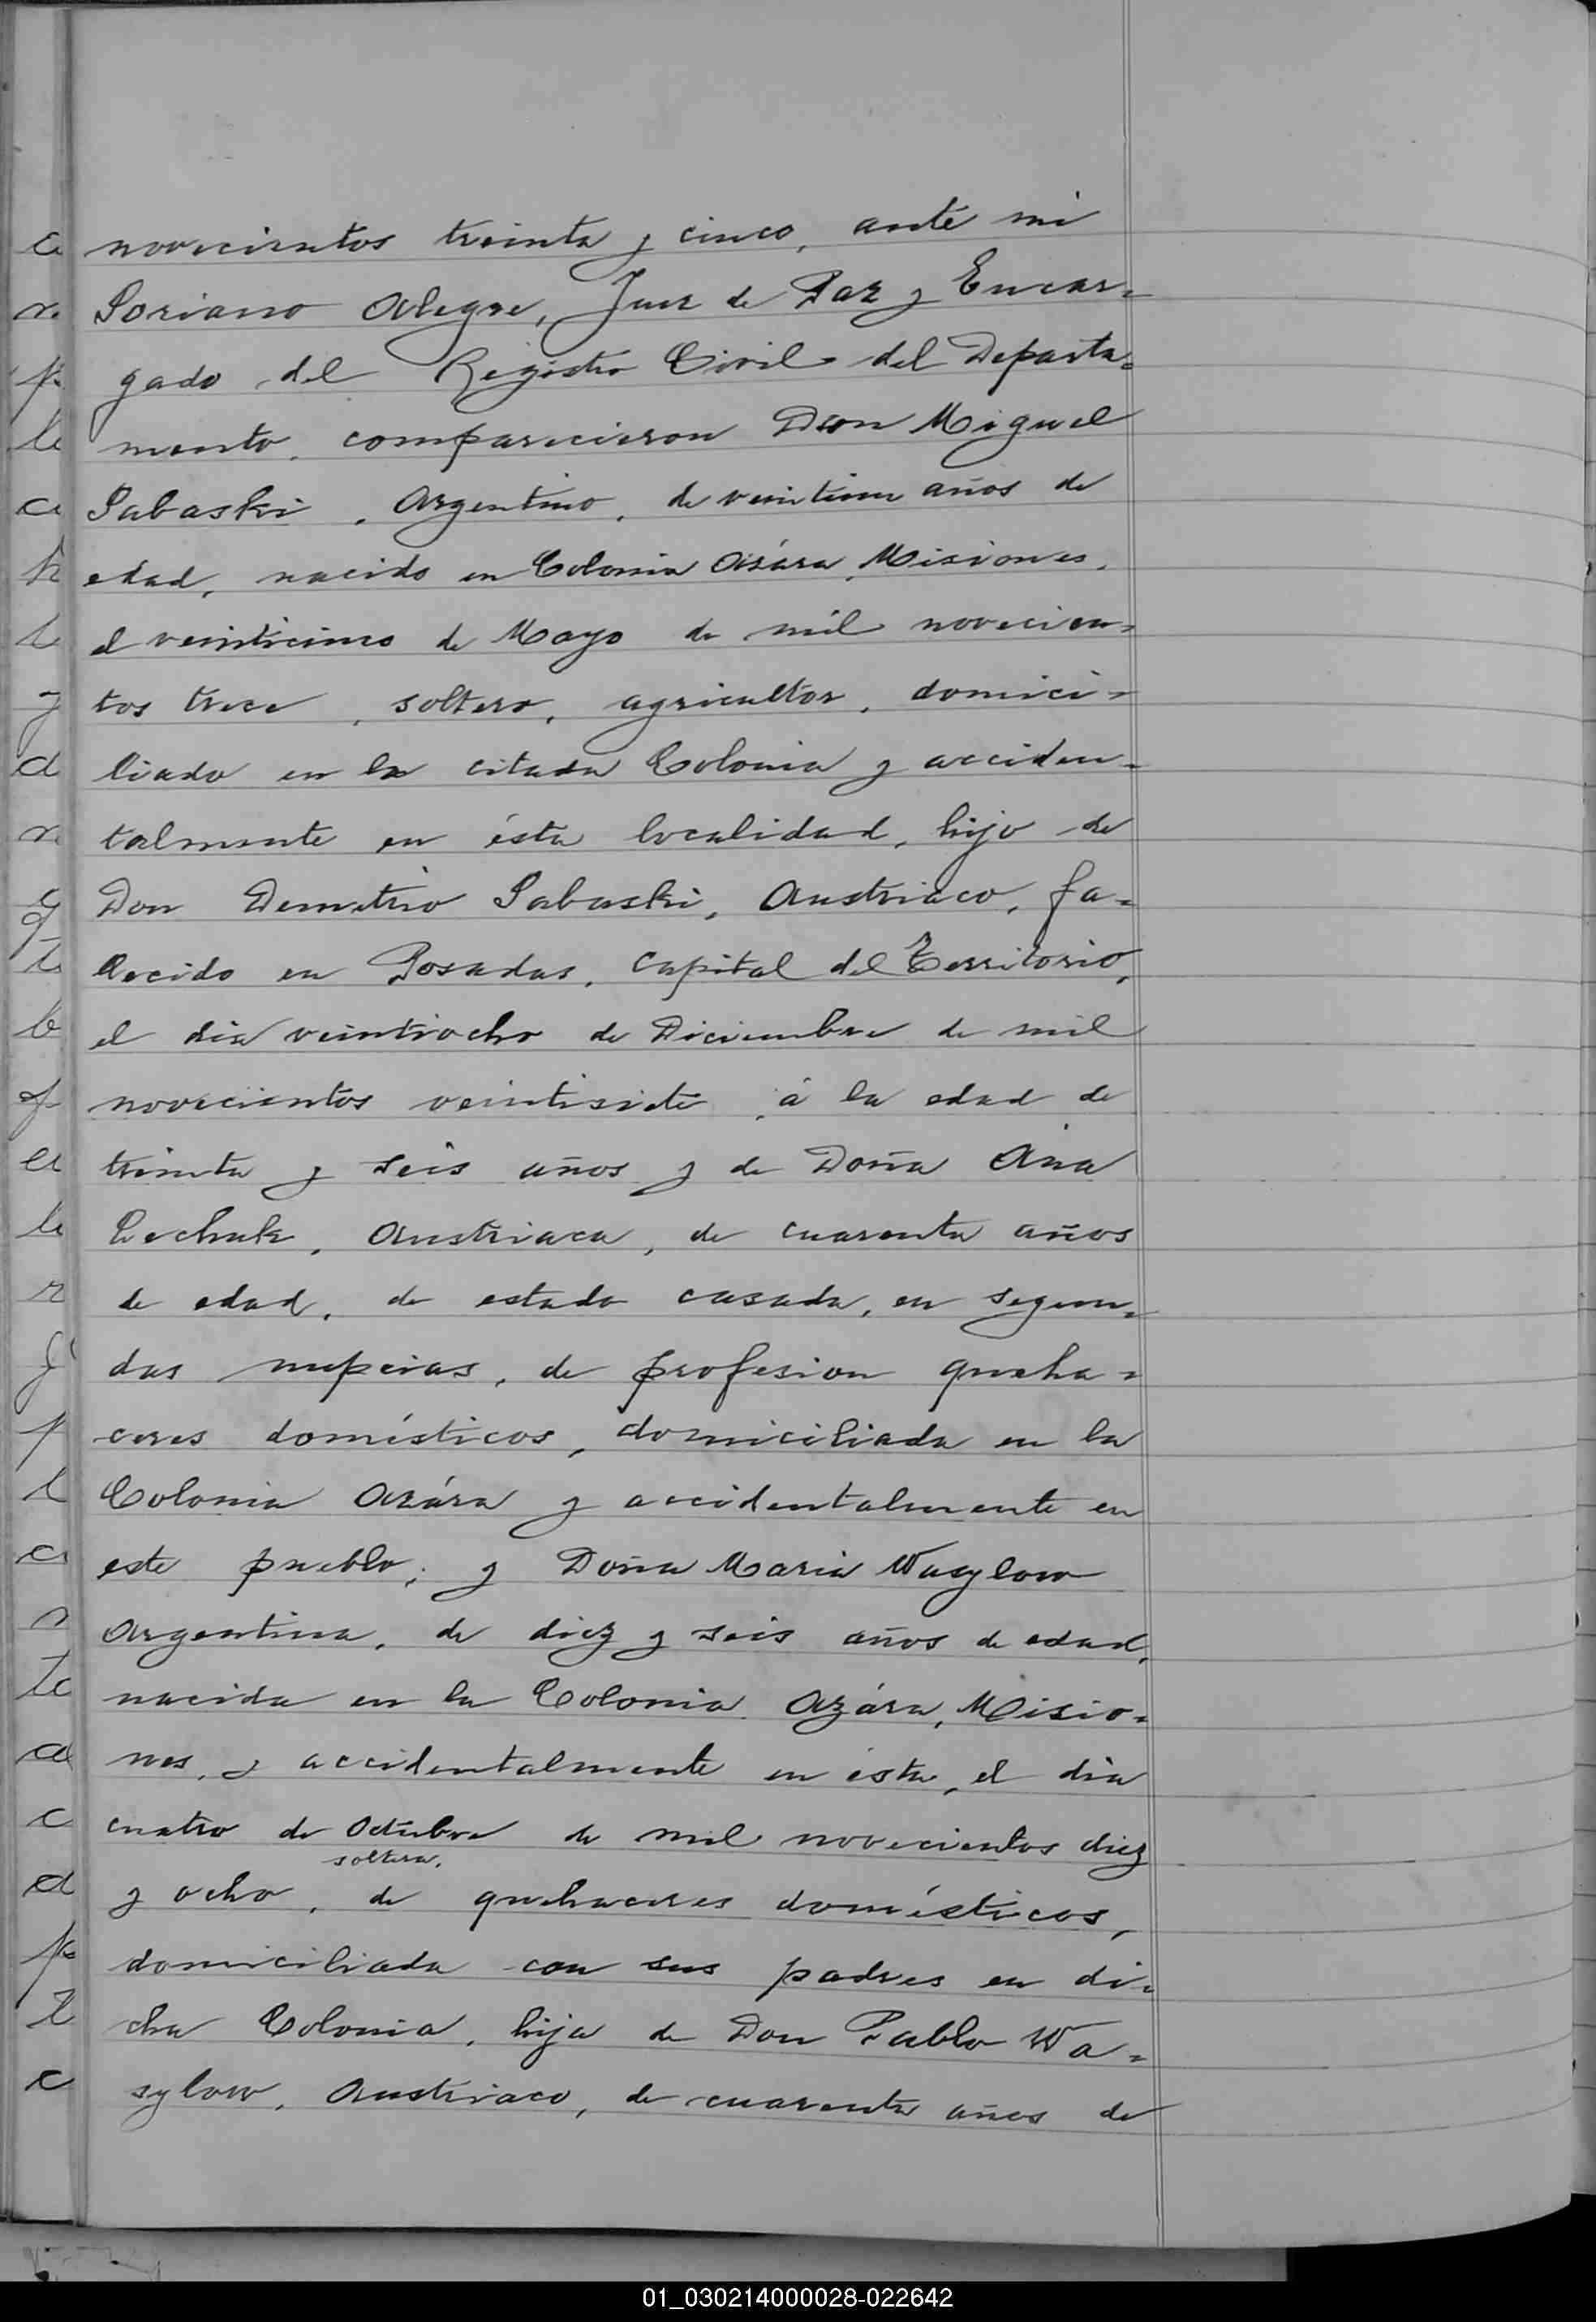 novecientos treinta y cinco, ante mi
Soriano Alegre, Juez de Paz y Encar=
gado del Registro Civil del Departa=
mento, comparecieron Don Miguel
Sabaski, Argentino, de veintiun años de
edad, nacido en Colonia Azára, Misiones,
el veinticinco de Mayo de mil novecien=
tos trece, soltero, agricultor, domici=
liado en la citada Colonia y acciden=
talmente en ésta localidad, hijo de
Don Demetrio Sabaski, Austriaco, fa=
llecido en Posadas, Capital del Territorio,
el dia veintiocho de Diciembre de mil
novecientos veintisiete, á la edad de
treinta y seis años y de Doña Ana
Lechuk, Austriaca, de cuarenta años
de edad, de estado casada, en segun=
das nupcias, de profesion queha=
ceres domésticos, domiciliada en la
Colonia Azára y accidentalmente en
este pueblo; y Doña Maria Wasylow
Argentina, de diez y seis años de edad,
nacida en la Colonia Azára, Misio=
nes, y accidentalmente en ésta, el dia
cuatro de Octubre de mil novecientos diez
soltera,
y ocho, de quehaceres domésticos,
domiciliada con sus padres en di=
cha Colonia, hija de Don Pablo Wa=
sylow, Austriaco, de cuarenta años de
01_030214000028-022642